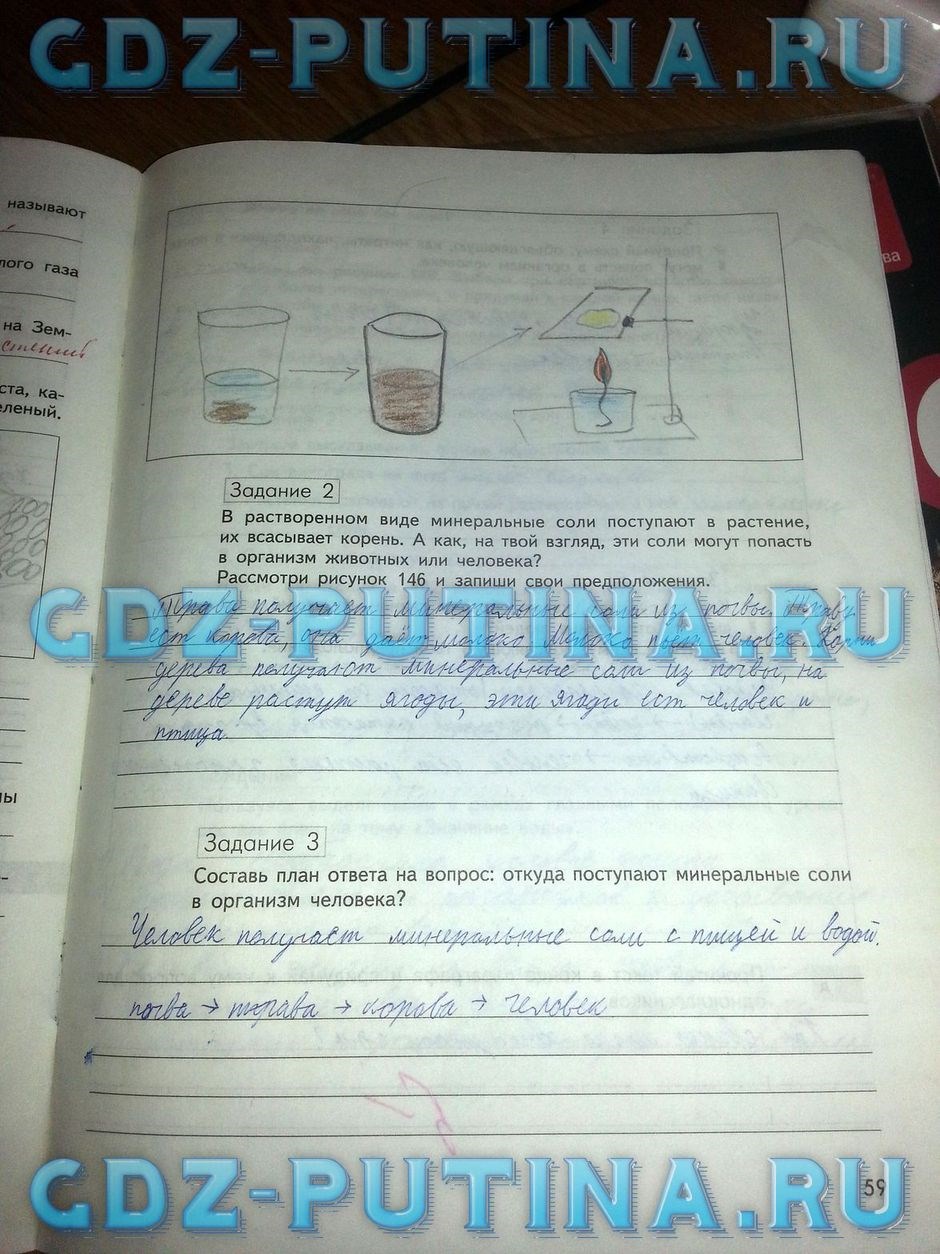 GDZ-PUTINA.RU
называют
лого газа
на Зем-
ста, ка-
еленый.
ва
Задание 2
В растворенном виде минеральные соли поступают в растение,
их всасывает корень. А как, на твой взгляд, эти соли могут попасть
в организм животных или человека?
Рассмотри рисунок 146 и запиши свои предположения.
GDZ-PUTINA.RU
Трава получает минеральные соли из почвы. Траву
ест корова, она даёт молоко. Молоко пьёт человек. Корни
дерева получают минеральные соли из почвы, на
дереве растут ягоды, эти ягоды ест человек и
птица.
Задание 3
Составь план ответа на вопрос: откуда поступают минеральные соли
в организм человека?
Человек получает минеральные соли с пищей и водой.
почва → трава → корова → человек
GDZ-PUTINA.RU
59